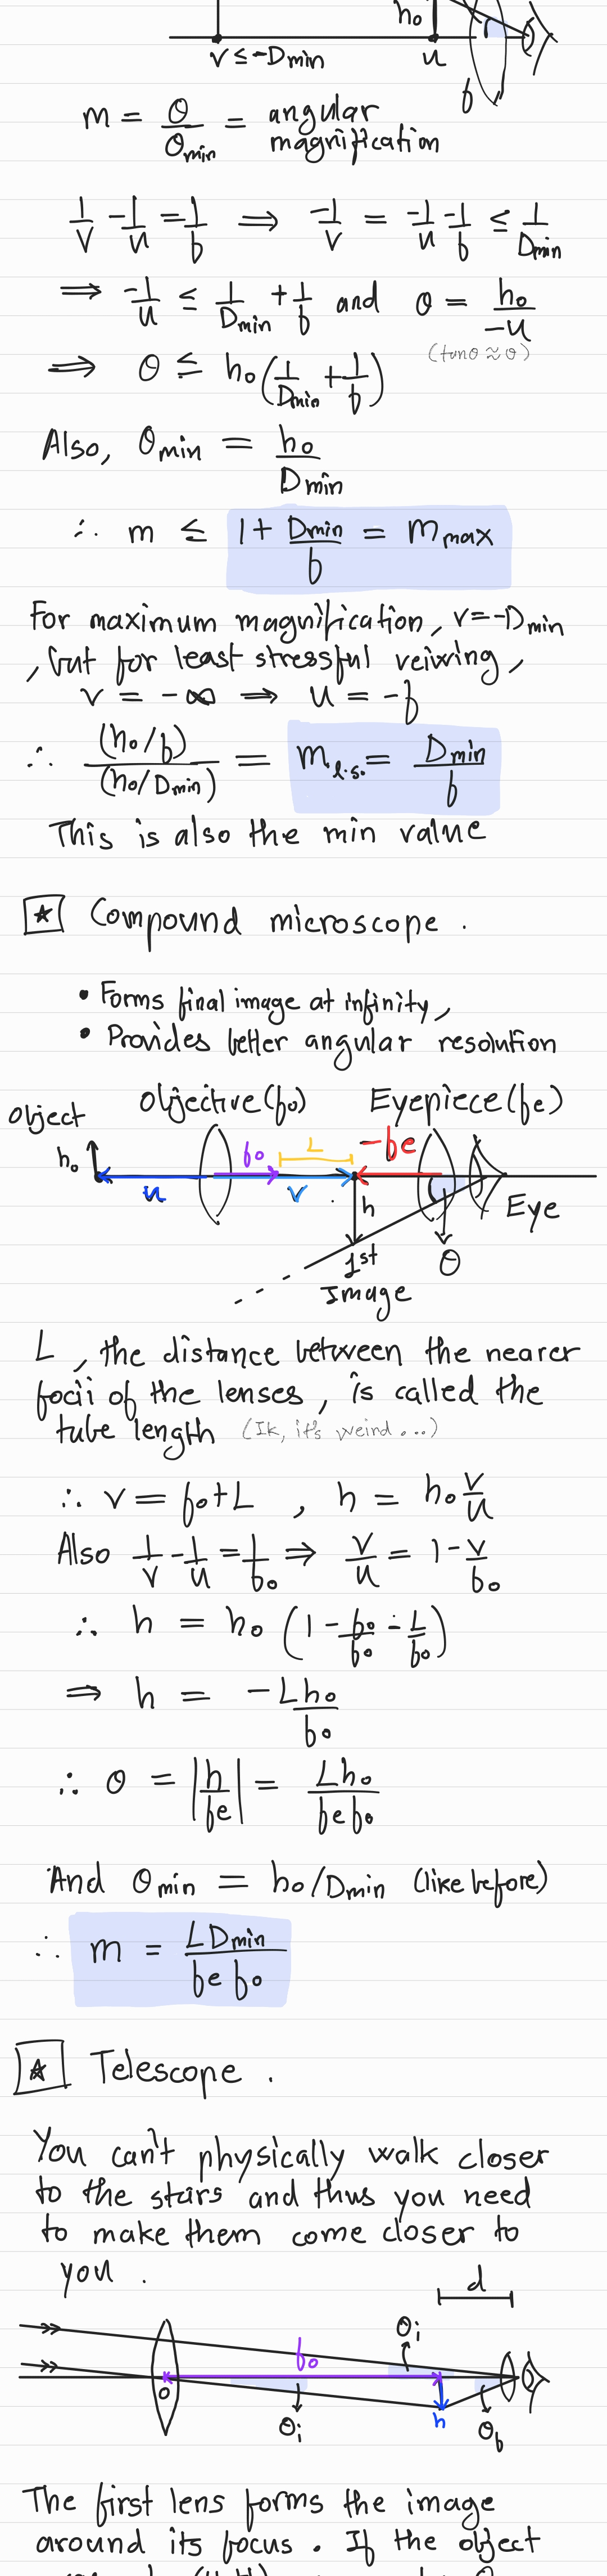 h₀
v ≤ -Dmin
u
f
m = θ/θmin = angular magnification
1/v - 1/u = 1/f ⟹ -1/v = -1/u - 1/f ≤ 1/Dmin
⟹ -1/u ≤ 1/Dmin + 1/f and θ = h₀/-u
(tanθ ≈ θ)
⟹ θ ≤ h₀(1/Dmin + 1/f)
Also, θmin = h₀/Dmin
∴ m ≤ 1 + Dmin/f = mmax
For maximum magnification, v = -Dmin
, but for least stressful veiwing,
v = -∞ ⟹ u = -f
∴ (h₀/f)/(h₀/Dmin) = ml.s. = Dmin/f
This is also the min value
★ Compound microscope.
• Forms final image at infinity,
• Provides better angular resolution
Object Objective(f₀) Eyepiece(fe)
h₀ f₀ L -fe
u v h Eye
1st θ
Image
L, the distance between the nearer
focii of the lenses, is called the
tube length (Ik, it's weird...)
∴ v = f₀ + L , h = h₀ v/u
Also 1/v - 1/u = 1/f₀ ⟹ v/u = 1 - v/f₀
∴ h = h₀ (1 - f₀/f₀ - L/f₀)
⟹ h = -Lh₀/f₀
∴ θ = |h/fe| = Lh₀/fe f₀
And θmin = h₀/Dmin (like before)
∴ m = LDmin/fe f₀
★ Telescope.
You can't physically walk closer
to the stars and thus you need
to make them come closer to
you.
d
θi
f₀
O
θi h θf
The first lens forms the image
around its focus. If the object